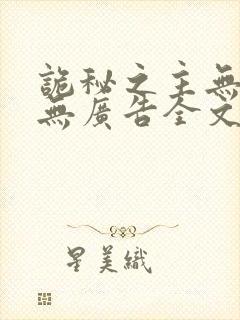 詭秘之主無
無廣告全文
星美織